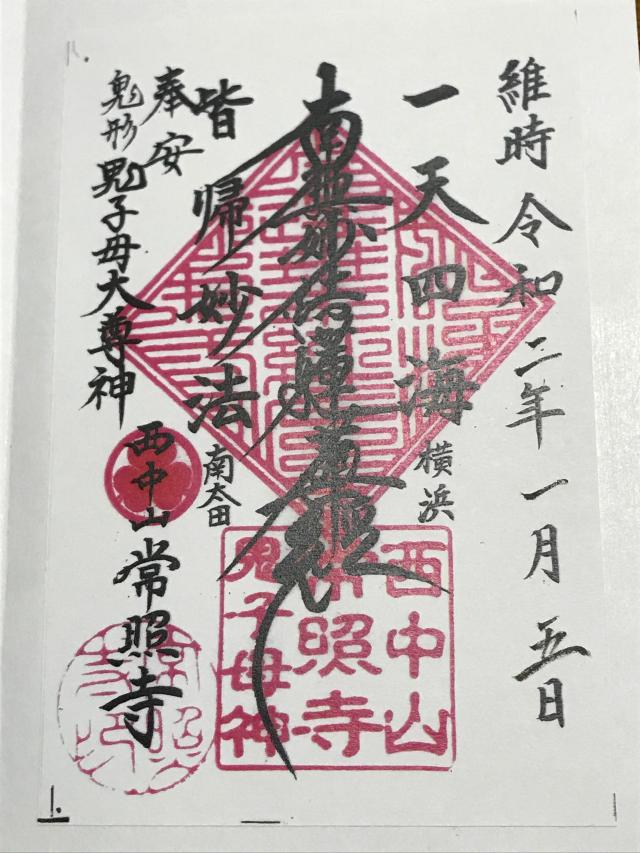 維時 令和二年一月五日
一天四海
横浜
南無妙法蓮華経
皆帰妙法
南太田
奉安
鬼形鬼子母大尊神
西中山 常照寺
西中山
常照寺
鬼子母神